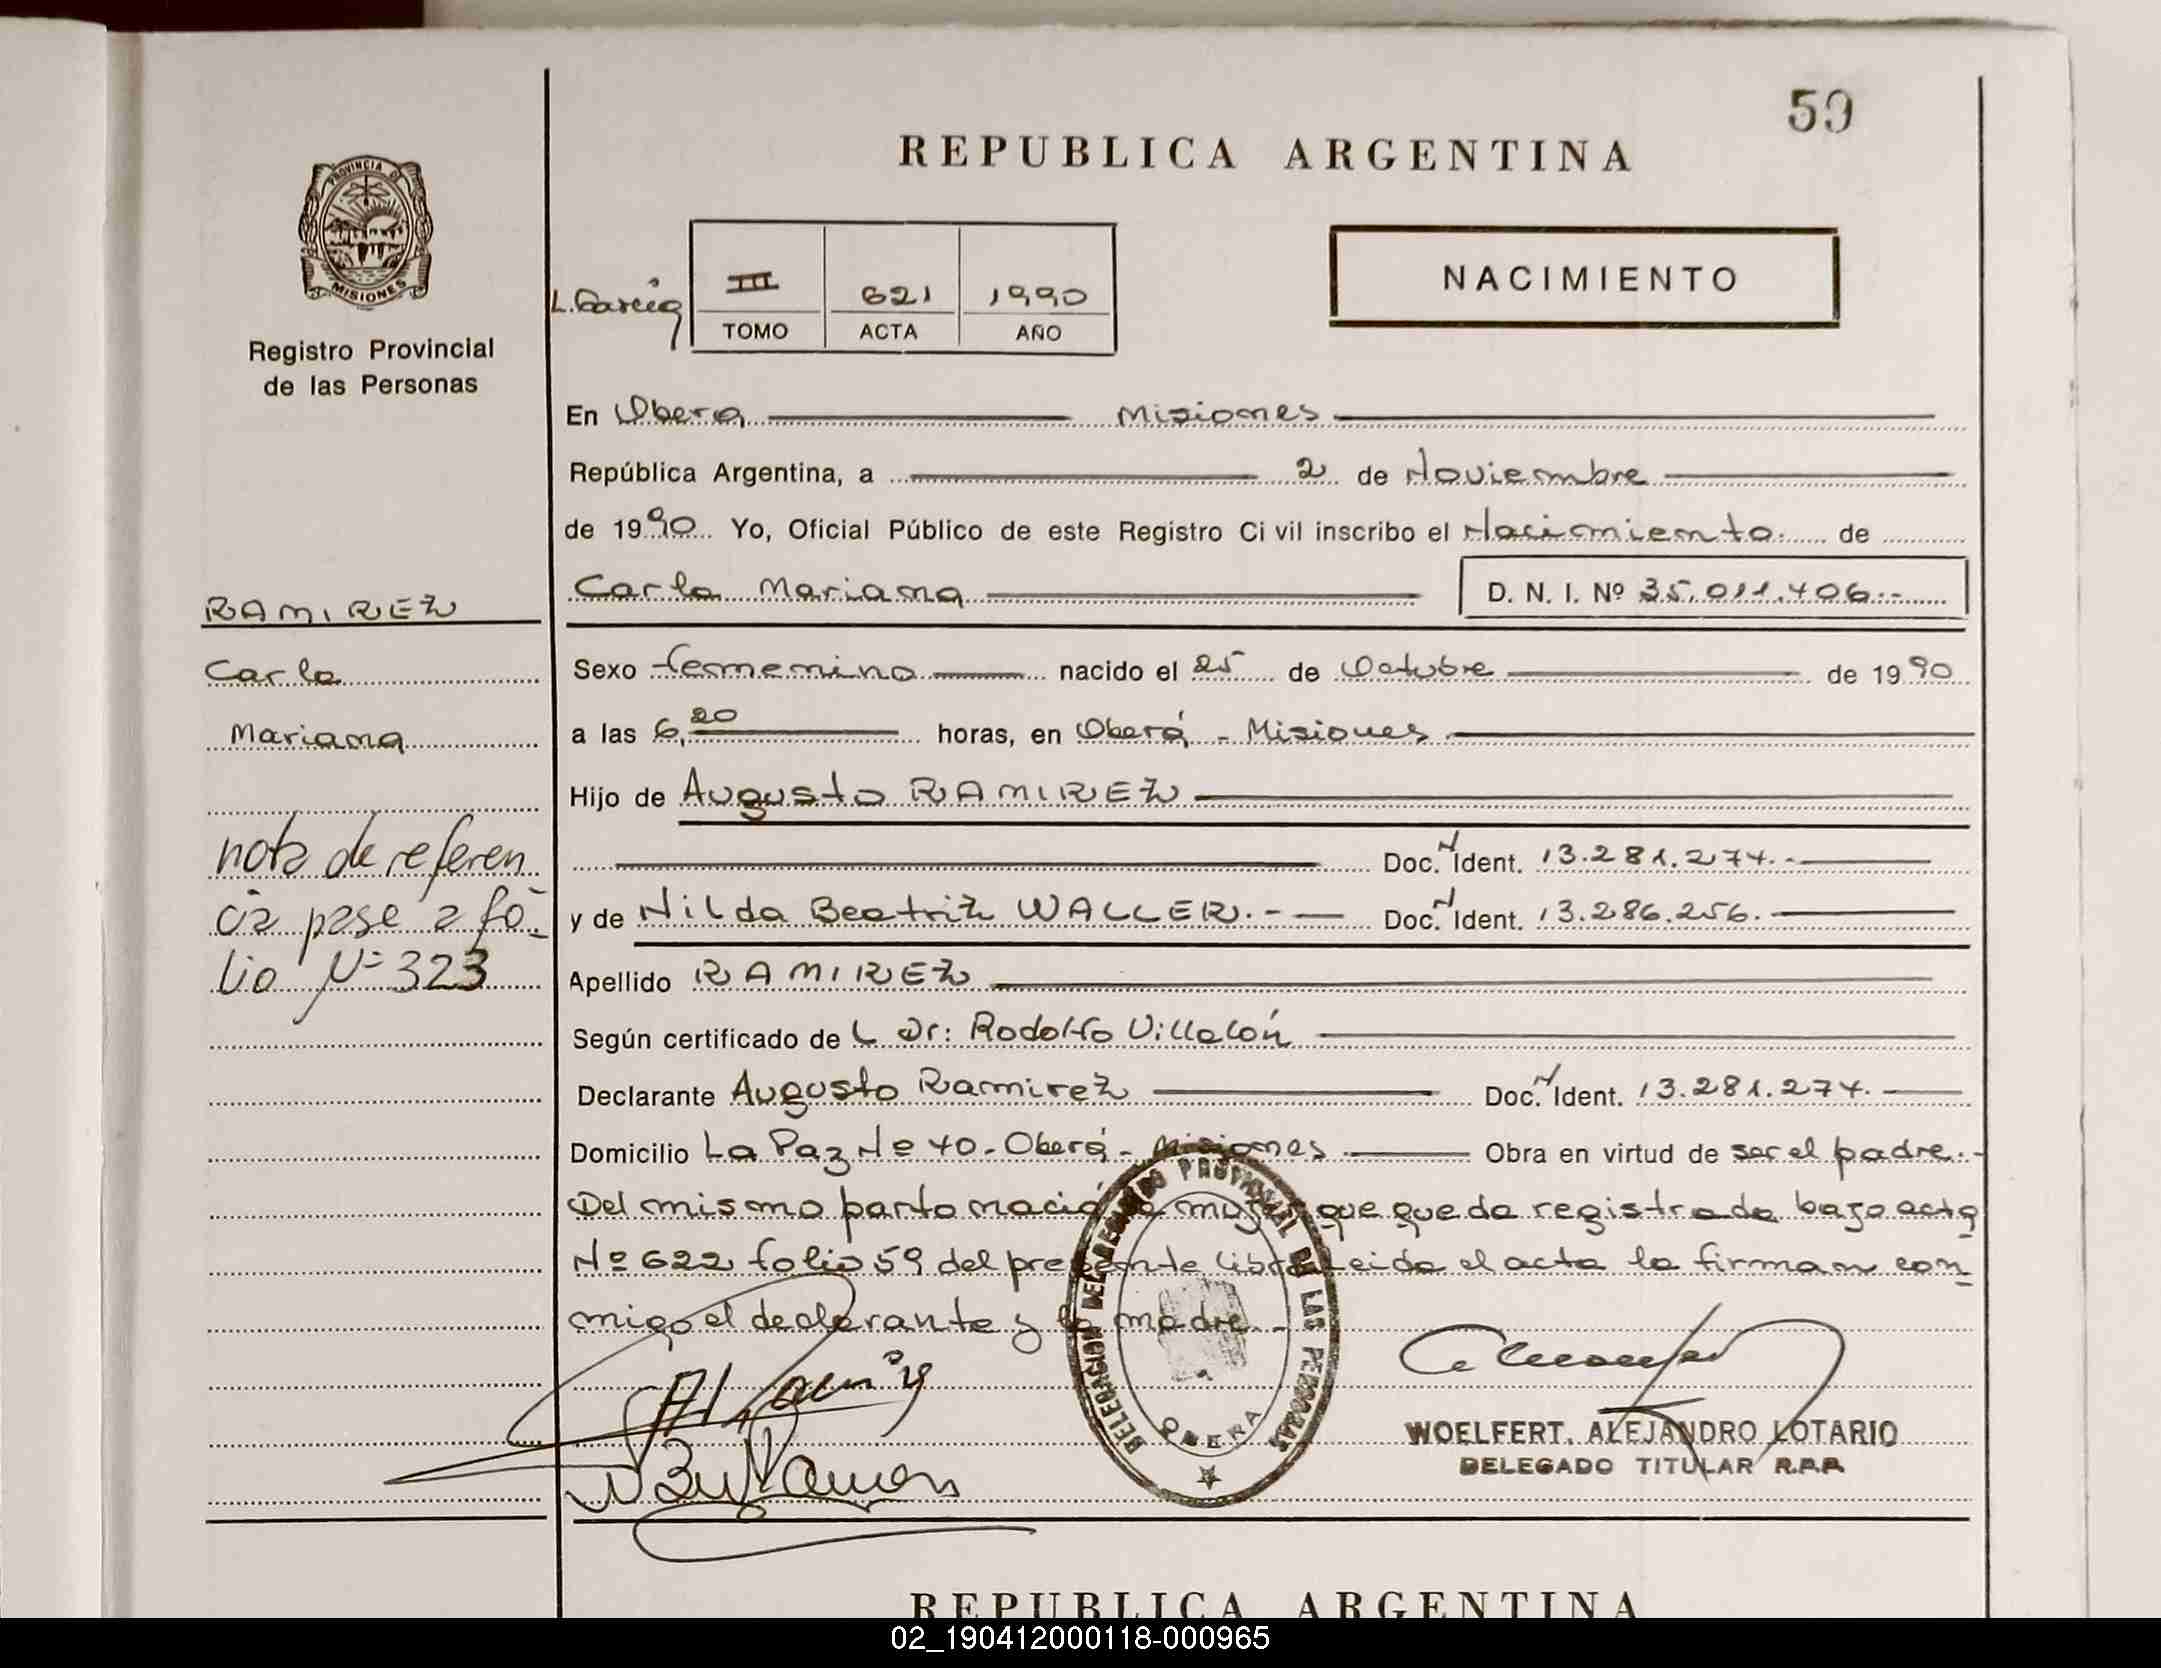 59
REPUBLICA ARGENTINA
PROVINCIA DE
MISIONES
Registro Provincial
de las Personas
L. Garcia
III 621 1990
TOMO ACTA AÑO
NACIMIENTO
En Obera Misiones
República Argentina, a 2 de Noviembre
de 1990 Yo, Oficial Público de este Registro Ci vil inscribo el Nacimiento. de
Carla Mariana D. N. I. Nº 35.011.406.-
RAMIREZ
Carla
Mariana
nota de referen
cia pase a fo-
lio Nº 323
Sexo femenino nacido el 25 de Octubre de 1990
a las 6,20 horas, en Oberá - Misiones
Hijo de Augusto RAMIREZ
Doc. N Ident. 13.281.274.-
y de Nilda Beatriz WALLER.- Doc. N Ident. 13.286.256.
Apellido RAMIREZ
Según certificado de L Dr: Rodolfo Villalón
Declarante Augusto Ramirez Doc. N Ident. 13.281.274.
Domicilio La Paz Nº 40 - Oberá - Misiones Obra en virtud de ser el padre.-
Del mismo parto nació la mujer que queda registrada bajo acta
Nº 622 folio 59 del presente libro Leida el acta la firman con-
migo el declarante y la madre.-
DELEGACION DEL REGISTRO PROVINCIAL DE LAS PERSONAS
OBERA
WOELFERT, ALEJANDRO LOTARIO
DELEGADO TITULAR R.P.P.
REPUBLICA ARGENTINA
02_190412000118-000965